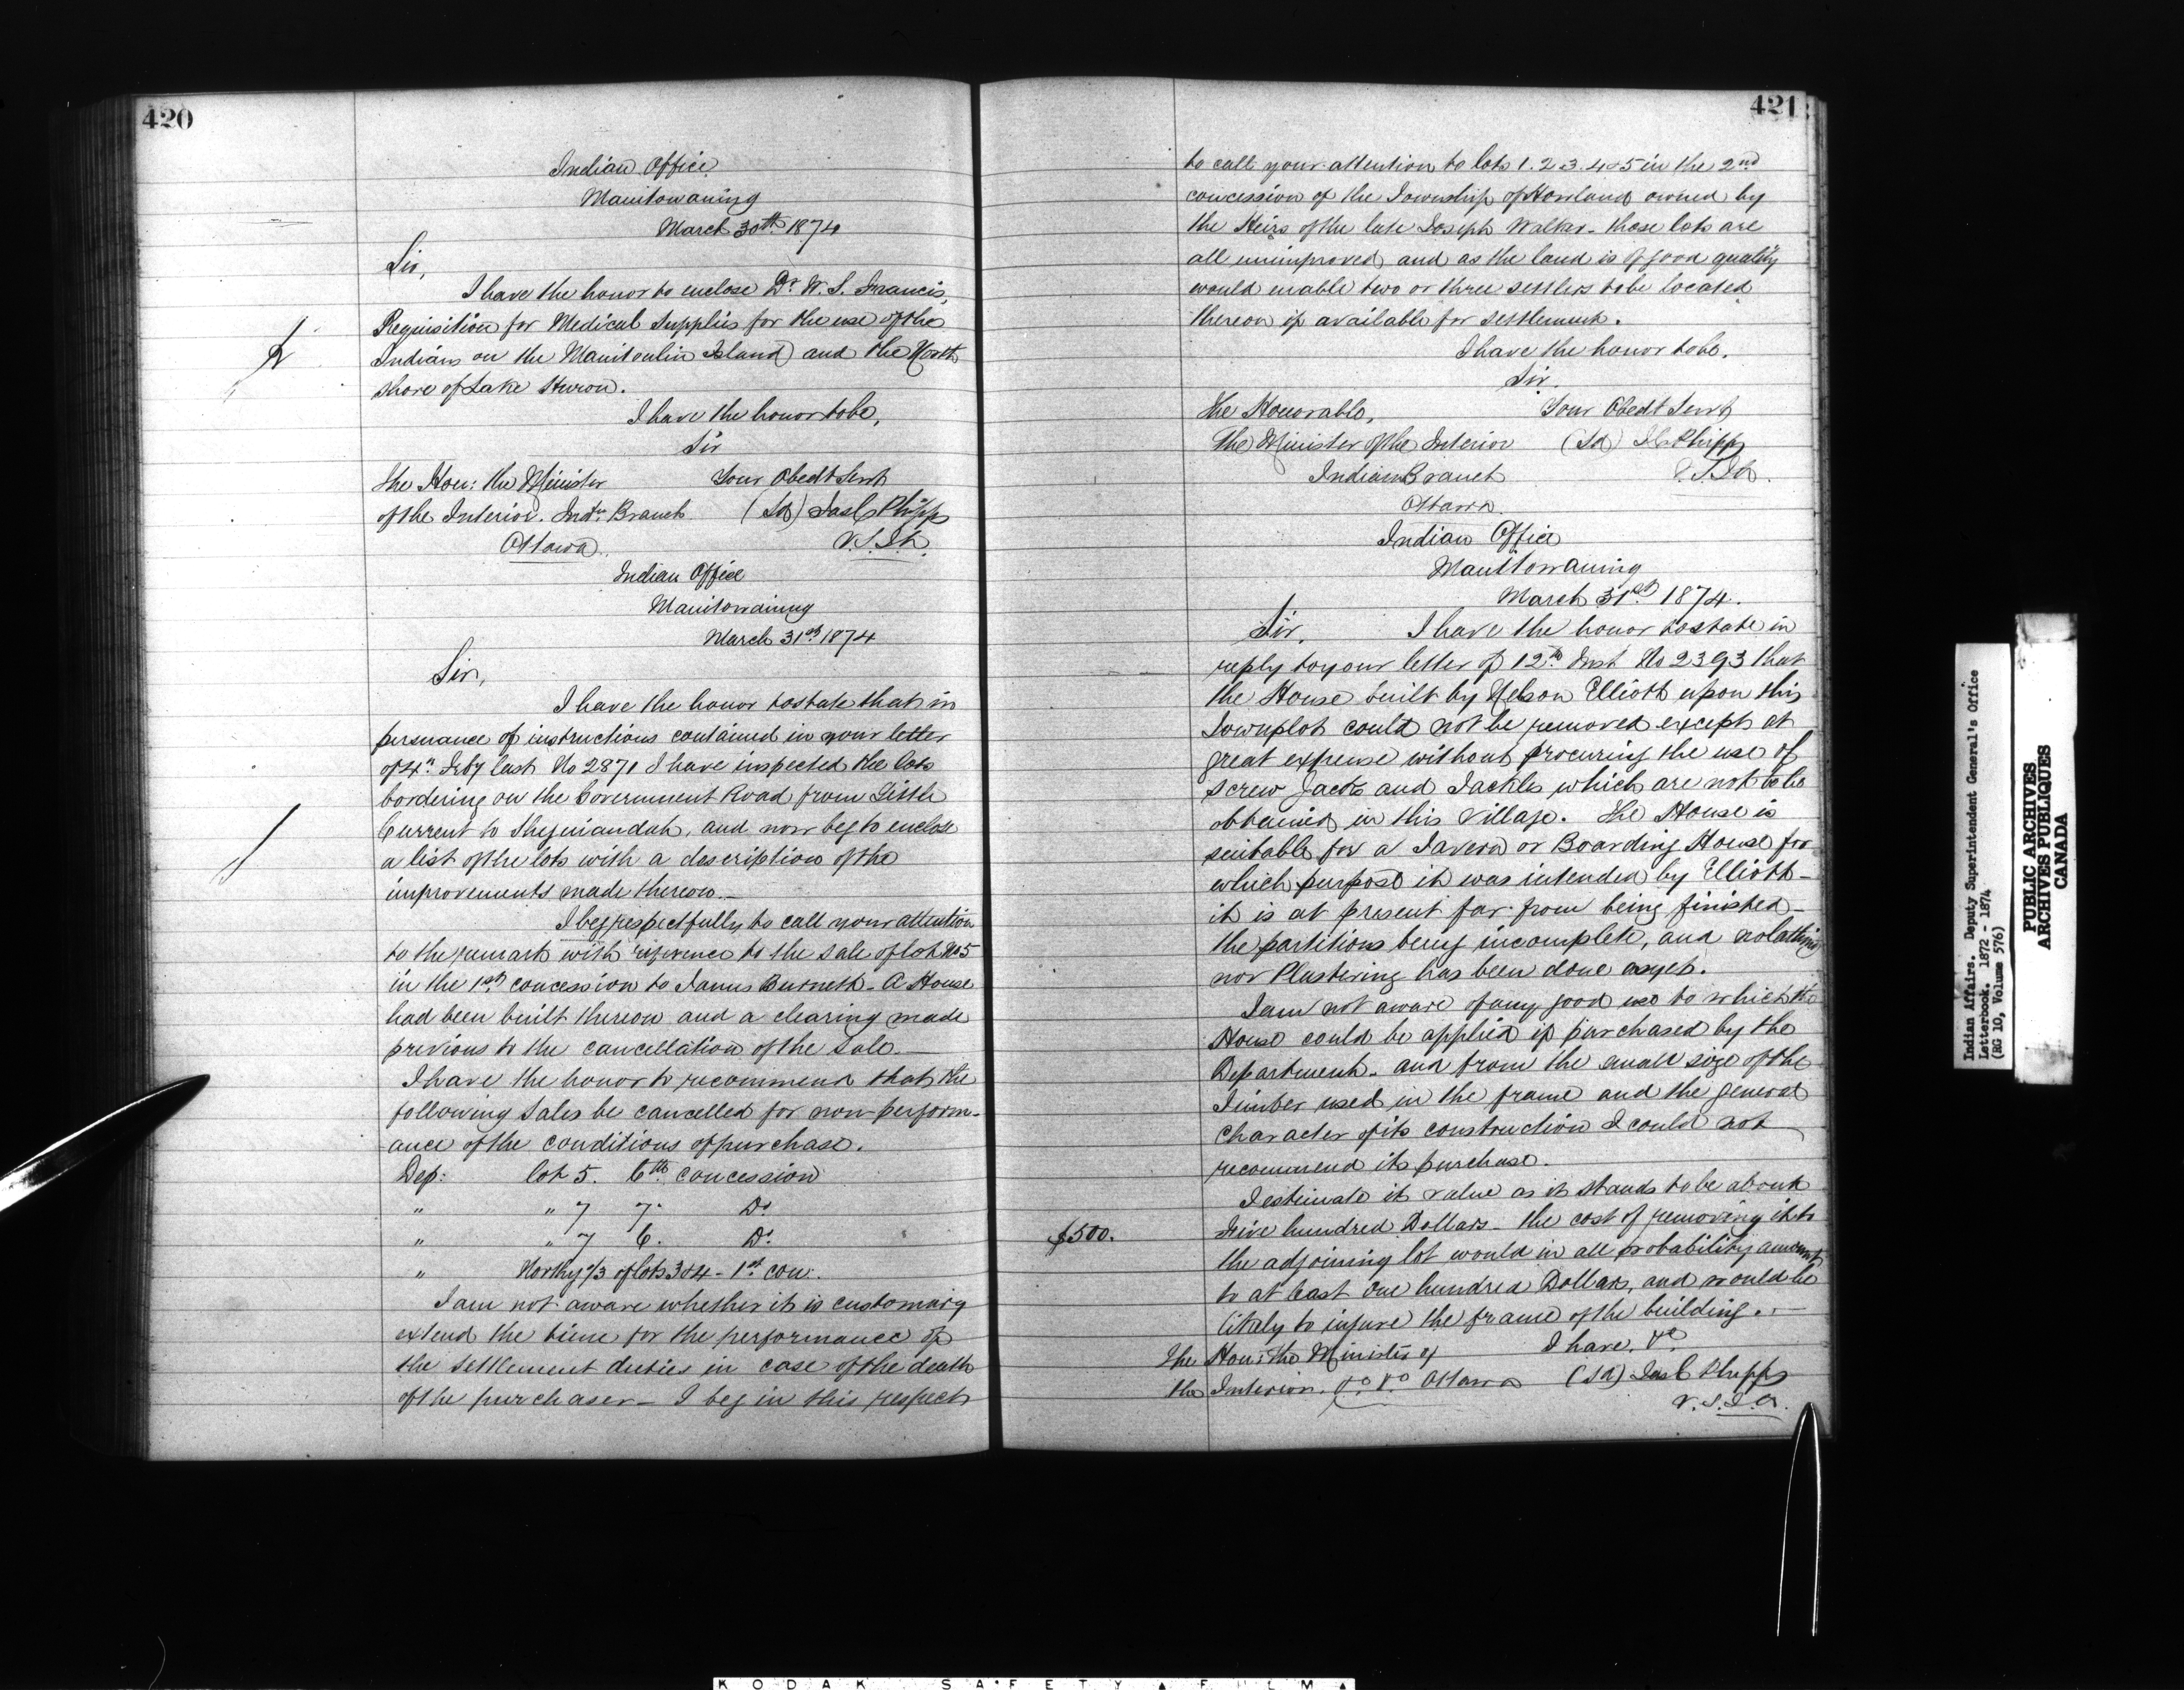 420
Indian Office
Manitowaning
March 30th 1874
Sir,
I have the honor to enclose Dr W. S. Francis,
Requisition for Medical Supplies for the use of the
Indians on the Manitoulin Island and the North
shore of Lake Huron.
I have the honor to be,
Sir
The Hon: the Minister
Your Obedt Servt
of the Interior. Indn Branch
(Sd) Jas C Phipps
Ottawa
V.S.I.A.
Indian Office
Manitowaning
March 31st 1874
Sir,
I have the honor to state that in
persuance of instructions contained in your letter
of 4th Feby last No 2871 I have inspected the lots
bordering on the Government Road from Little
Current to Sheguiandah, and now beg to enclose
a list of the lots with a description of the
improvements made thereon.
I beg respectfully to call your attention
to the remark with reference to the sale of lot No 5
in the 1st concession to James Burnett - A House
had been built thereon and a clearing made
previous to the cancellation of the sale.
I have the honor to recommend that the
following sales be cancelled for non-perform-
ance of the conditions of purchase.
Dep: lot 5. 6th concession
" " 7 7. Do
" " 7 6. Do
" Northy 2/3 of lots 3 & 4 - 1st con:
I am not aware whether it is customary
extend the time for the performance of
the settlement duties in case of the death
of the purchaser - I beg in this respect
421
to call your attention to lots 1. 2. 3. 4 & 5 in the 2nd
concession of the Township of Howland owned by
the Heirs of the late Joseph Walker - these lots are
all unimproved and as the land is of good quality
would enable two or three settlers to be located
thereon if available for settlement.
I have the honor to be.
Sir.
The Honorable,
Your Obedt Servt
The Minister of the Interior
(Sd) J C Phipps
Indian Branch
V.S.I.A.
Ottawa.
Indian Office
Manitowaning
March 31st 1874.
Sir, I have the honor to state in
reply to your letter of 12th Inst No 2393 that
the House built by Nelson Elliott upon this
Townplot could not be removed except at
great expense without procuring the use of
screw Jacks and Tackles which are not to be
obtained in this Village. The House is
suitable for a Tavern or Boarding House for
which purpose it was intended by Elliott -
it is at present far from being finished -
the partitions being incomplete, and no lathing
nor Plastering has been done as yet.
I am not aware of any good use to which the
House could be applied if purchased by the
Department. and from the small size of the
Timber used in the frame and the general
Character of its construction I could not
recommend its purchase.
I estimate its value as it stands to be about
$500.
Five hundred Dollars - the cost of removing it to
the adjoining lot would in all probability amount
to at least one hundred Dollars, and would be
likely to injure the frame of the building.
The Hon: the Minister of
I have. &c
the Interior. &c &c Ottawa
(Sd) Jas C Phipps
V.S.I.A.
Indian Affairs. Deputy Superintendent General's Office
Letterbook. 1872 - 1874
(RG 10, Volume 576)
PUBLIC ARCHIVES
ARCHIVES PUBLIQUES
CANADA
KODAK SAFETY FILM